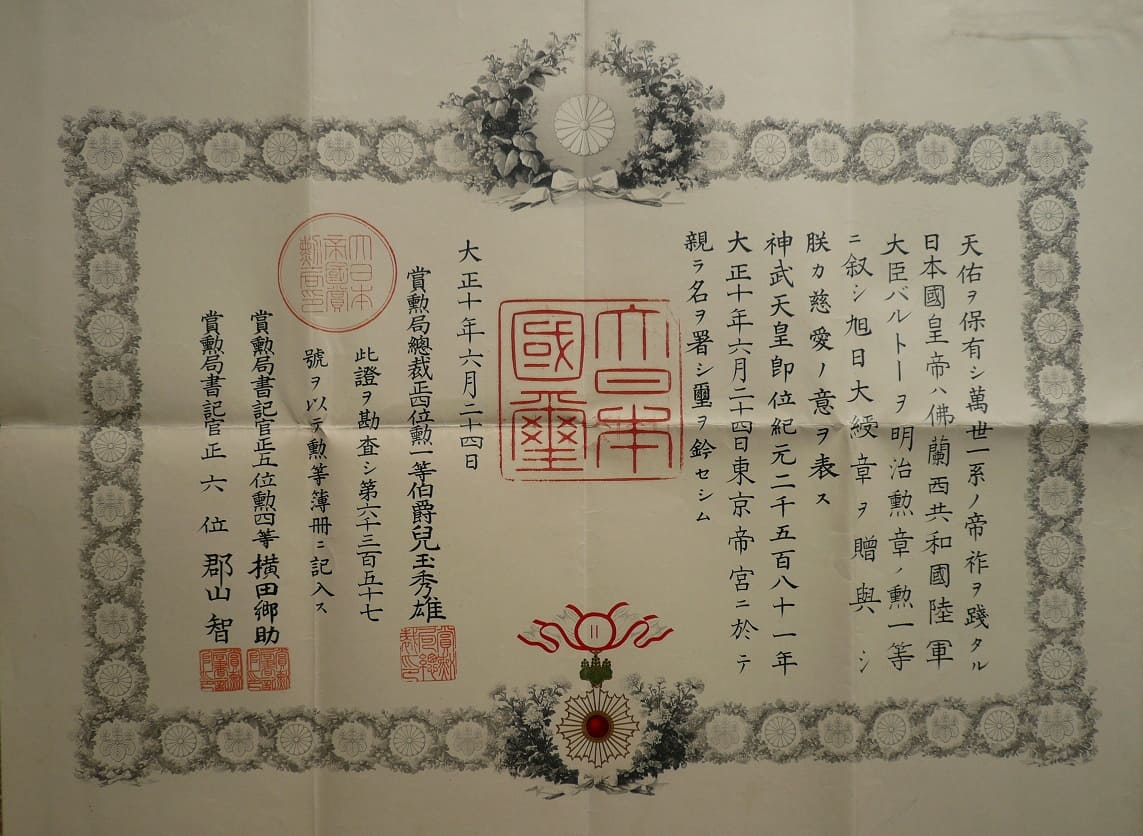 天佑ヲ保有シ萬世一系ノ帝祚ヲ踐タル
日本國皇帝ハ佛蘭西共和國陸軍
大臣バルトーヲ明治勲章ノ勲一等
ニ叙シ旭日大綬章ヲ贈與シ
朕カ慈愛ノ意ヲ表ス
神武天皇即位紀元二千五百八十一年
大正十年六月二十四日東京帝宮ニ於テ
親ラ名ヲ署シ璽ヲ鈐セシム
大日本
國璽
大正十年六月二十四日
賞勲局總裁正四位勲一等伯爵兒玉秀雄
此證ヲ勘査シ第六千三百五十七
號ヲ以テ勲等簿冊ニ記入ス
大日本
帝國賞
勲局印
賞勲局書記官正五位勲四等横田郷助
賞勲局書記官正六位郡山智